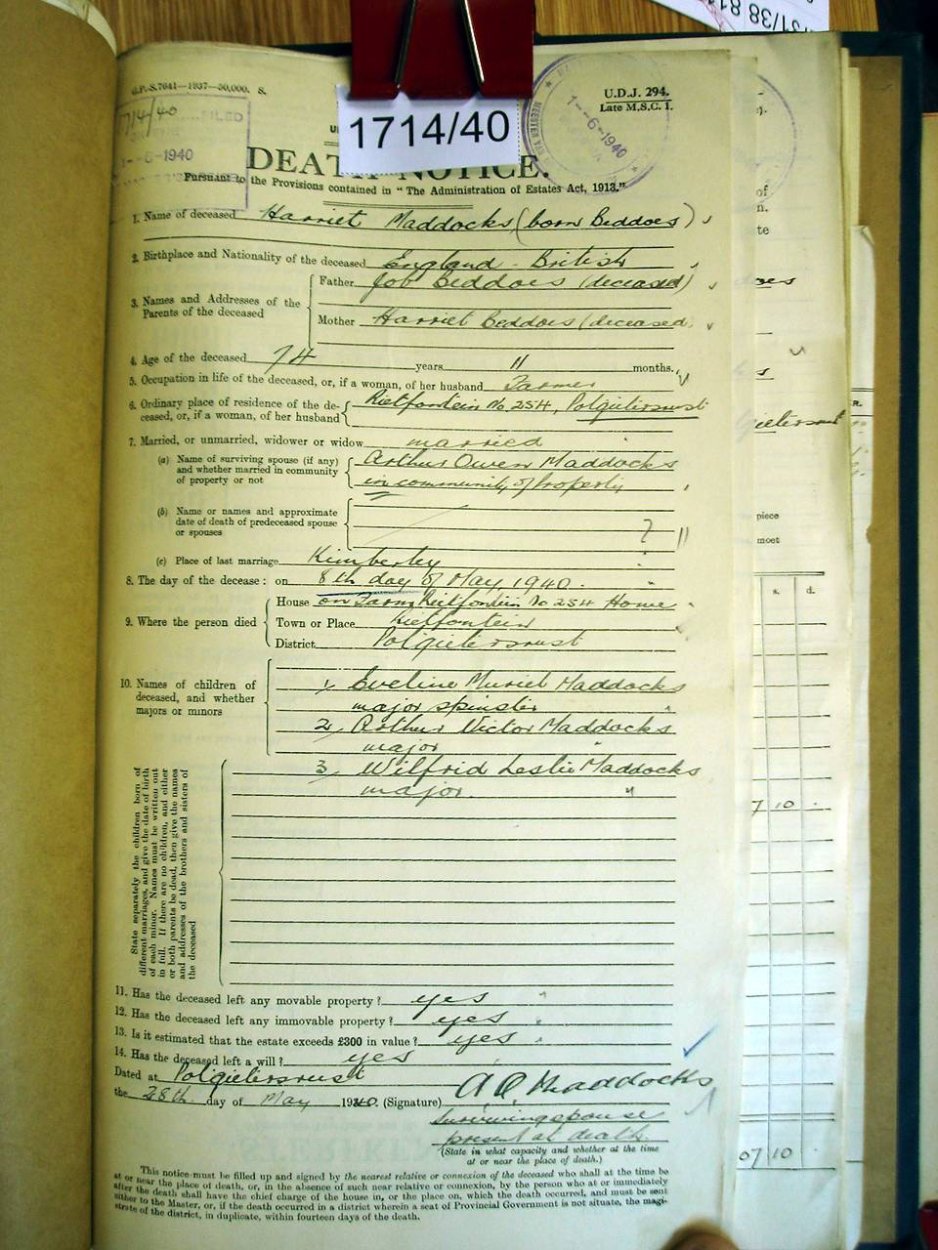 31/38 81
G.P.-S.7641—1937—50,000. S.
U.D.J. 294.
Late M.S.C. 1.
1714/40
FILED
1--6-1940
1--6-1940
1714/40
DEATH NOTICE.
Pursuant to the Provisions contained in "The Administration of Estates Act, 1913."
1. Name of deceased Harriet Maddocks (born Beddoes)
2. Birthplace and Nationality of the deceased England - British
3. Names and Addresses of the Parents of the deceased
Father Job Beddoes (deceased)
Mother Harriet Beddoes (deceased
4. Age of the deceased 74 years 11 months.
5. Occupation in life of the deceased, or, if a woman, of her husband Farmer
6. Ordinary place of residence of the de-
ceased, or, if a woman, of her husband
Rietfontein No 254, Potgietersrust
7. Married, or unmarried, widower or widow married
(a) Name of surviving spouse (if any)
and whether married in community
of property or not
Arthur Owen Maddocks
in community of Property
(b) Name or names and approximate
date of death of predeceased spouse
or spouses
?
(c) Place of last marriage Kimberley
8. The day of the decease: on 8th day of May 1940.
9. Where the person died
House on Farm Rietfontein No 254 Home
Town or Place Rietfontein
District Potgietersrust
10. Names of children of
deceased, and whether
majors or minors
1, Eveline Muriel Maddocks
major spinster
2, Arthur Victor Maddocks
major
3, Wilfrid Leslie Maddocks
major.
State separately the children born of
different marriages, and give the date of birth
of each minor. Names must be written out
in full. If there are no children, and either
or both parents be dead, then give the names
and addresses of the brothers and sisters of
the deceased
11. Has the deceased left any movable property? yes
12. Has the deceased left any immovable property? yes
13. Is it estimated that the estate exceeds £300 in value? yes
14. Has the deceased left a will? yes
Dated at Potgietersrust
the 28th day of May 1940. (Signature) A O Maddocks
Surviving spouse
present at death.
(State in what capacity and whether at the time
at or near the place of death.)
This notice must be filled up and signed by the nearest relative or connexion of the deceased who shall at the time be
at or near the place of death, or, in the absence of such near relative or connexion, by the person who at or immediately
after the death shall have the chief charge of the house in, or the place on, which the death occurred, and must be sent
either to the Master, or, if the death occurred in a district wherein a seat of Provincial Government is not situate, the magi-
strate of the district, in duplicate, within fourteen days of the death.
of
n.
te
piece
moet
s. d.
7 10
07 10